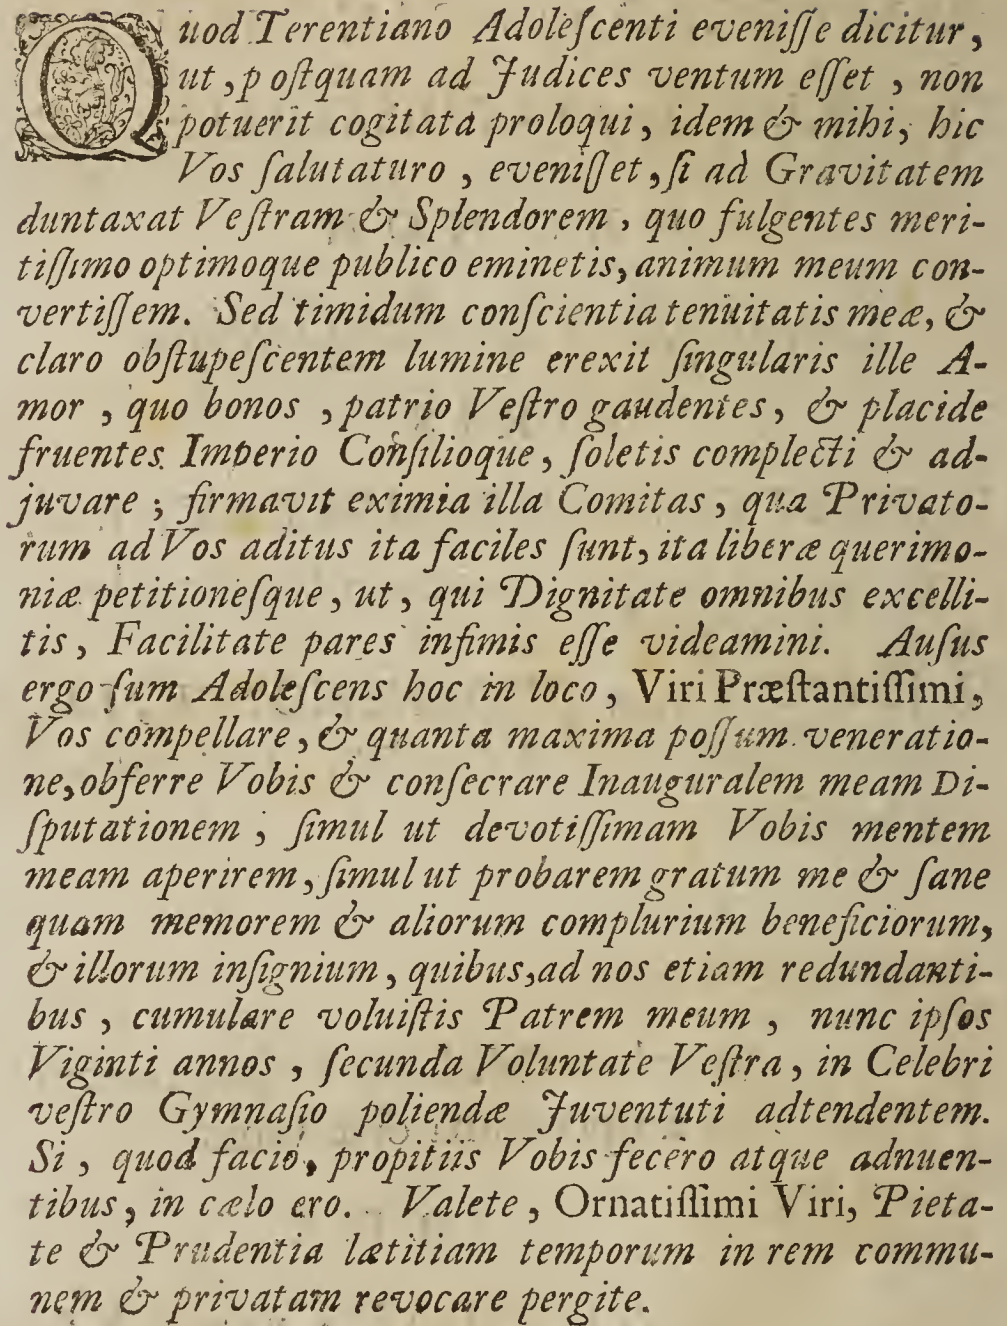 Quod Terentiano Adoleſcenti eveniſſe dicitur,
ut, poſtquam ad Judices ventum eſſet, non
potuerit cogitata proloqui, idem & mihi, hic
Vos ſalutaturo, eveniſſet, ſi ad Gravitatem
duntaxat Veſtram & Splendorem, quo fulgentes meri-
tiſſimo optimoque publico eminetis, animum meum con-
vertiſſem. Sed timidum conſcientia tenuitatis meæ, &
claro obſtupeſcentem lumine erexit ſingularis ille A-
mor, quo bonos, patrio Veſtro gaudentes, & placide
fruentes Imperio Conſilioque, ſoletis complecti & ad-
juvare; firmavit eximia illa Comitas, qua Privato-
rum ad Vos aditus ita faciles ſunt, ita liberæ querimo-
niæ petitioneſque, ut, qui Dignitate omnibus excelli-
tis, Facilitate pares infimis eſſe videamini. Auſus
ergo ſum Adoleſcens hoc in loco, Viri Præſtantiſſimi,
Vos compellare, & quanta maxima poſſum veneratio-
ne, obferre Vobis & conſecrare Inauguralem meam Di-
ſputationem; ſimul ut devotiſſimam Vobis mentem
meam aperirem, ſimul ut probarem gratum me & ſane
quam memorem & aliorum complurium beneficiorum,
& illorum inſignium, quibus, ad nos etiam redundanti-
bus, cumulare voluiſtis Patrem meum, nunc ipſos
Viginti annos, ſecunda Voluntate Veſtra, in Celebri
veſtro Gymnaſio poliendæ Juventuti adtendentem.
Si, quod facio, propitiis Vobis fecero atque adnuen-
tibus, in cælo ero. Valete, Ornatiſſimi Viri, Pieta-
te & Prudentia lætitiam temporum in rem commu-
nem & privatam revocare pergite.